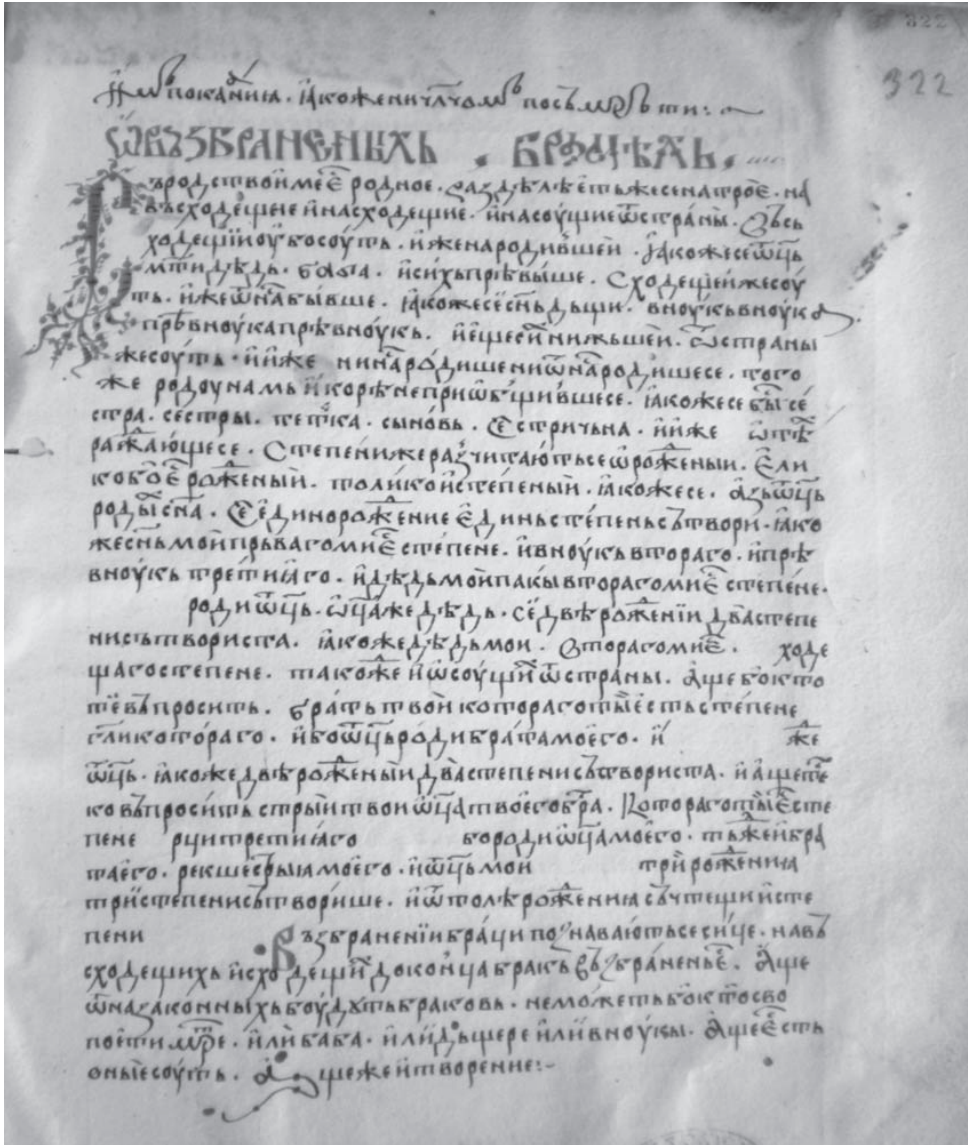 322
322
покаꙗнїа · ꙗкоже ни
ѿ възбраненыхь · брацѣхь ·
Съродство именꙋе родное · раздѣлѣеть же се на трое · на
въсходещее и насходещие · и на соущие ѿ страны · Въсь
ходещїи оубо соуть · иже на родившеи · ꙗкоже се ѿць
мти дѣдь · баба · и сихь прѣвыше · Сходещеи же соу
ть · иже ѿ на бывше · ꙗкоже се снь дьщи · вноукь вноука
прѣвноука прѣвноукь · и еще си нижьшеи · ѿ страны
же соуть · и иже ни на родише ни ѿ на родише се · того
же родоу намь и корѣне приѡбьщивше се · ꙗкоже се бы се
стра · сестры · тетка · сыновь · Сестричьна · и иже ѿ тѣ
ражающе се · Степени же разчитають се ѿ роженыи · Ели
ко бо е роженыи · толико и степеныи · ꙗкоже се · азь ѿць
роды сна · Се едино рожение единь степень сътвори · ꙗко
же снь мои прьваго ми е степене · и вноукь втораго · и прѣ
вноукь третиꙗго · и дѣдь мои пакы втораго ми е степене ·
роди ѿць · ѿца же дѣдь · се двѣ рожении два степе
ни сътвориста · ꙗкоже дѣдь мои · Втораго ми е · ходе
щаго степене · такоже и ѿ соущи ѿ страны · Аще бо кто
те въпросить · брать твои котораго ты есть степене
гли котораго · ибо ѿць роди брата моего · и же
ѿць · ꙗкоже двѣ роженыи два степени сътвориста · и аще те
ко въпросить стрыи твои ѿца твоего бра · Котораго ти е сте
пене рци третиꙗго бо роди ѿца моего · тъже и бра
та его · рекше стрыа моего · и ѿць мои три рожениа
три степени сътворише · и ѿтолѣ рожениа съчтеши и сте
пени Възбранении браци познавають се сице · на въ
сходещихь и сходещи до конца бракь възбранень е · Аще
ѿ на законныхь боудꙋть браковь · не можеть бо кто сво
поети мтре · или баба · или дьщере или вноукы · Аще е сть
оные соуть · Аще же и творение :~